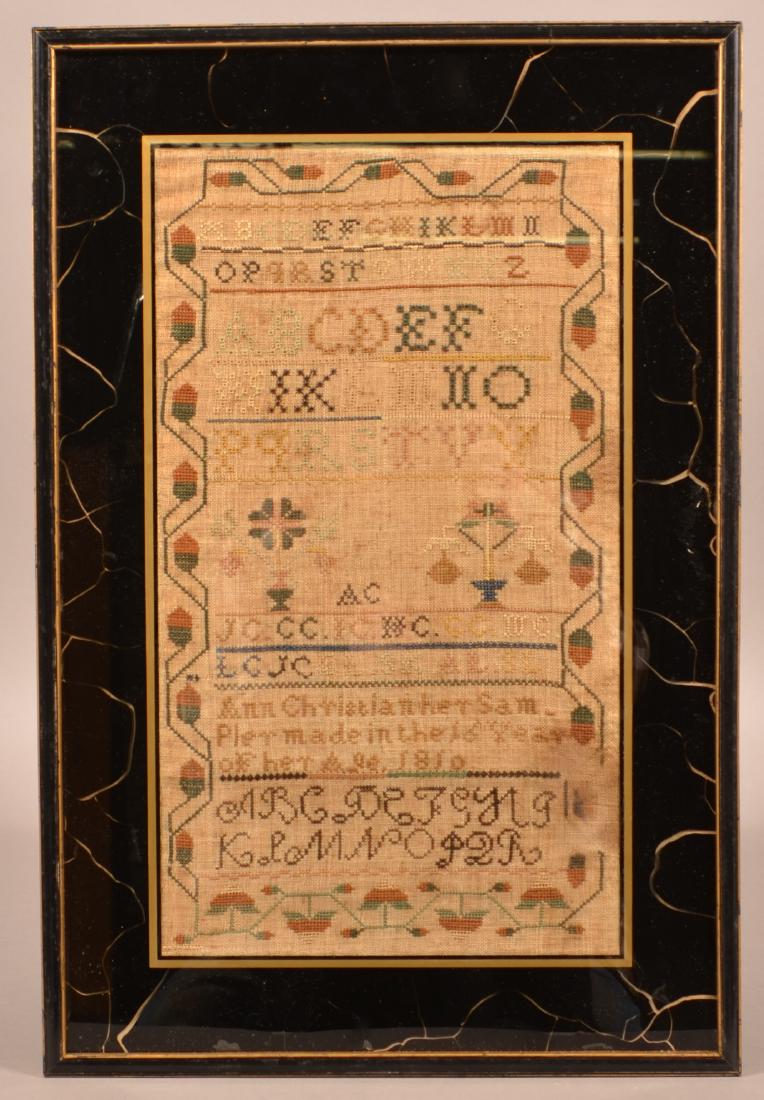 A B C D E F G H I K L M II
O P q R S T Z
A B C D E F G
H IK L M II O
P q R S T V V
AC
JC. CC. IC WC. CC WC
LC JC
Ann Christian her Sam
Pler made in the 16 Year
of her Age, 1810
A B C D E F G H I J
K L M N O P Q R